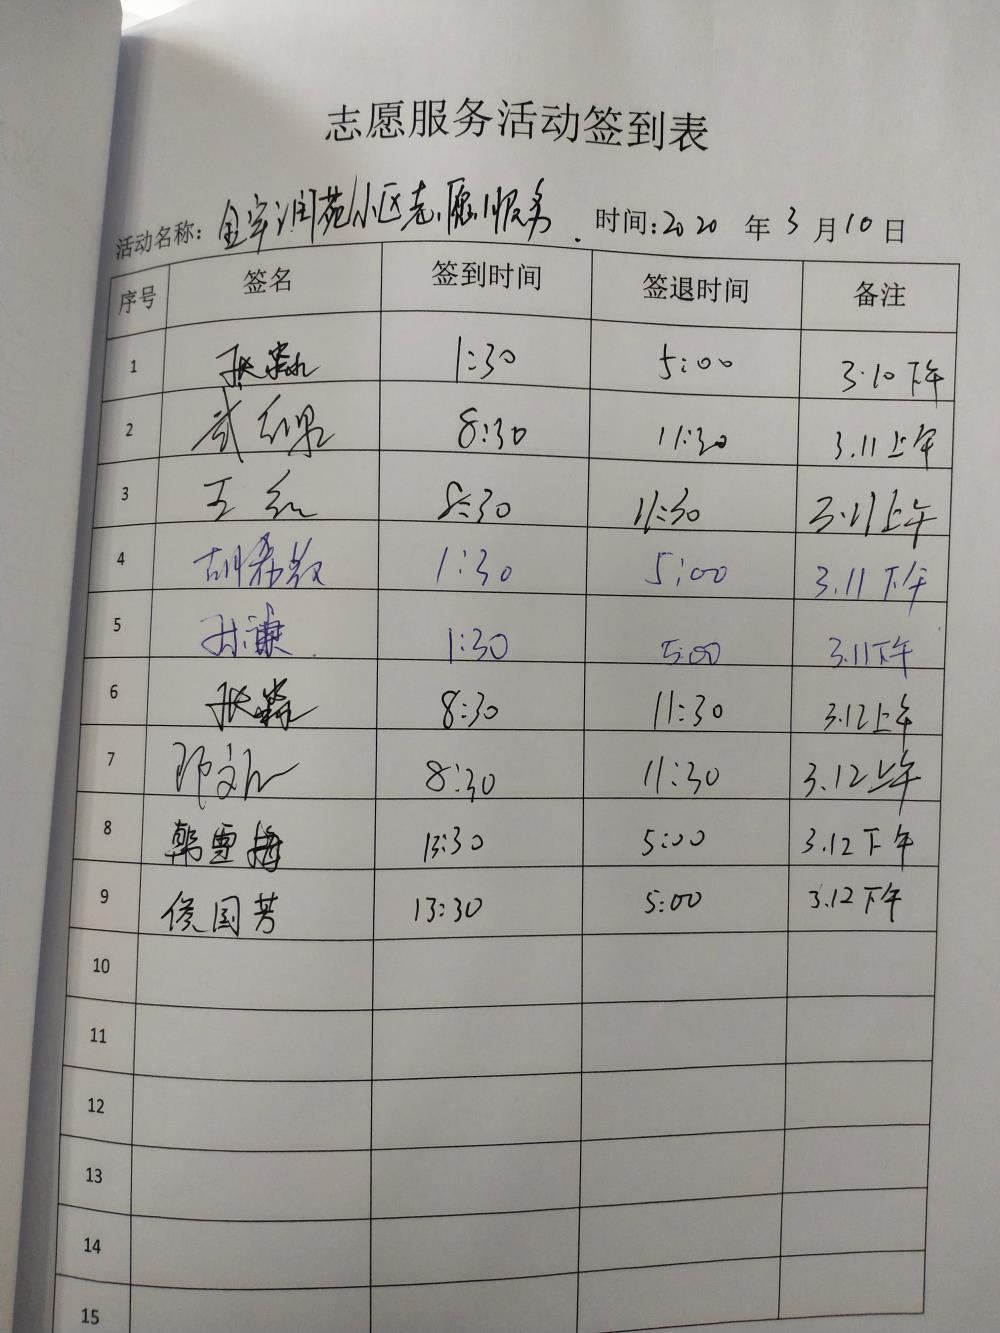 志愿服务活动签到表
活动名称: 金宇润苑小区志愿服务. 时间:2020 年 3 月 10 日
序号 签名 签到时间 签退时间 备注
1 张淼 1:30 5:00 3.10下午
2 武 8:30 11:30 3.11上午
3 王红 8:30 11:30 3.11上午
4 胡希敏 1:30 5:00 3.11下午
5 孙谦 1:30 5:00 3.11下午
6 张淼 8:30 11:30 3.12上午
7 邓文 8:30 11:30 3.12上午
8 郭雪梅 13:30 5:00 3.12下午
9 侯国芳 13:30 5:00 3.12下午
10
11
12
13
14
15